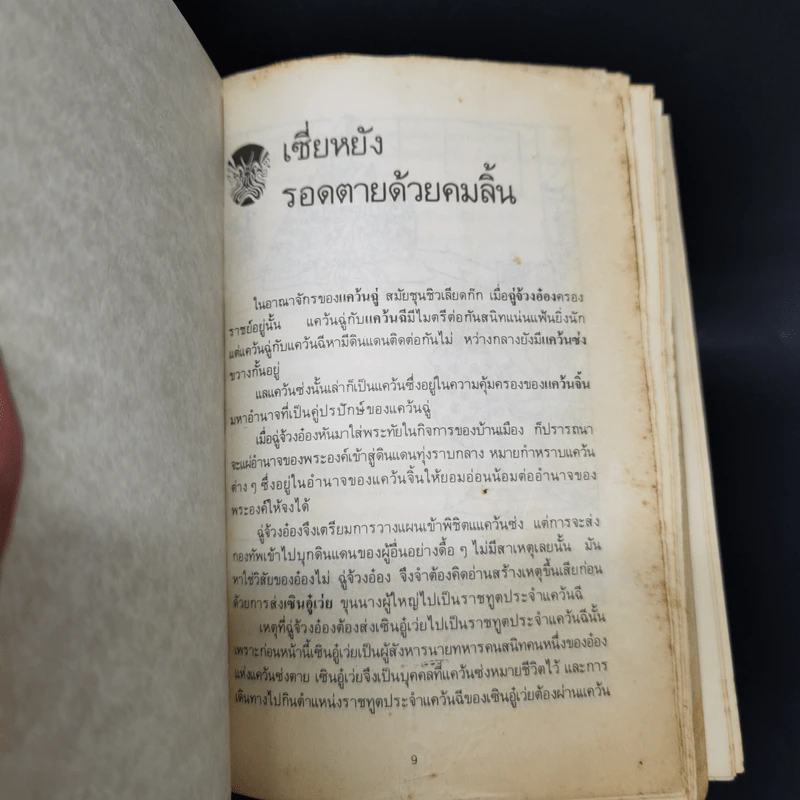 เซี่ยหยัง
รอดตายด้วยคมลิ้น
ในอาณาจักรของแคว้นฉู่ สมัยชุนชิวเลียดก๊ก เมื่อฉู่จ้วงอ๋องครอง
ราชย์อยู่นั้น แคว้นฉู่กับแคว้นฉีมีไมตรีต่อกันสนิทแน่นแฟ้นยิ่งนัก
แต่แคว้นฉู่กับแคว้นฉีหามีดินแดนติดต่อกันไม่ หว่างกลางยังมีแคว้นซ่ง
ขวางกั้นอยู่
แลแคว้นซ่งนั้นเล่าก็เป็นแคว้นซึ่งอยู่ในความคุ้มครองของแคว้นจิ้น
มหาอำนาจที่เป็นคู่ปรปักษ์ของแคว้นฉู่
เมื่อฉู่จ้วงอ๋องหันมาใส่พระทัยในกิจการของบ้านเมือง ก็ปรารถนา
จะแผ่อำนาจของพระองค์เข้าสู่ดินแดนทุ่งราบกลาง หมายกำหราบแคว้น
ต่าง ๆ ซึ่งอยู่ในอำนาจของแคว้นจิ้นให้ยอมอ่อนน้อมต่ออำนาจของ
พระองค์ให้จงได้
ฉู่จ้วงอ๋องจึงเตรียมการวางแผนเข้าพิชิตแแคว้นซ่ง แต่การจะส่ง
กองทัพเข้าไปบุกดินแดนของผู้อื่นอย่างดื้อ ๆ ไม่มีสาเหตุเลยนั้น มัน
หาใช่วิสัยของอ๋องไม่ ฉู่จ้วงอ๋อง จึงจำต้องคิดอ่านสร้างเหตุขึ้นเสียก่อน
ด้วยการส่งเซินอู๋เว่ย ขุนนางผู้ใหญ่ไปเป็นราชทูตประจำแคว้นฉี
เหตุที่ฉู่จ้วงอ๋องต้องส่งเซินอู๋เว่ยไปเป็นราชทูตประจำแคว้นฉีนั้น
เพราะก่อนหน้านี้เซินอู๋เว่ยเป็นผู้สังหารนายทหารคนสนิทคนหนึ่งของอ๋อง
แห่งแคว้นซ่งตาย เซินอู๋เว่ยจึงเป็นบุคคลที่แคว้นซ่งหมายชีวิตไว้ และการ
เดินทางไปกินตำแหน่งราชทูตประจำแคว้นฉีของเซินอู๋เว่ยต้องผ่านแคว้น
9